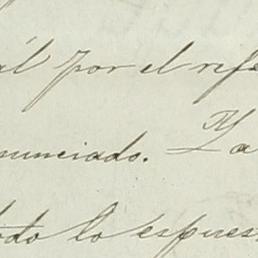 al por el refe
nunciado. Ya
odo lo espues